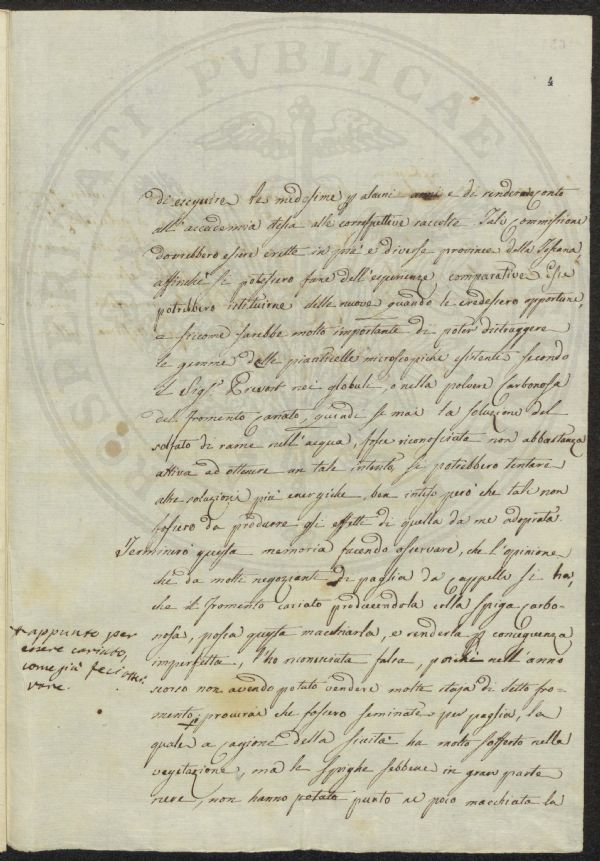 4
di eseguire le medesime p alcuni anni e di renderne conto
all'accademia stessa alle corrispettive raccolte. Tale Commissione
dovrebbero essere erette in più e diverse province della Toscana
affinchè si potessero fare dell'esperienze comparative. Esse
potrebbero istituirne delle nuove quando le credessero opportune,
e siccome sarebbe molto importante di poter distruggere
le gemme delle pianticelle microscopiche esistenti secondo
il Sigr. Prevost nei globuli, o nella polvere Carbonosa
del fromento Cariato, quindi se mai la soluzione del
solfato di rame nell'acqua, fosse riconosciuta non abbastanza
attiva ad ottenere un tale intento, si potrebbero tentare
altre soluzioni più energiche, ben inteso però che tali non
fossero da produrre gli effetti di quella da me adoprata.
Terminerò questa memoria facendo osservare, che l'opinione
che da molti negozianti di paglia da cappelli si ha,
che il fromento cariato producendola colla spiga carbo-
nosa, possa questa macchiarla, e renderla p conseguenza
imperfetta, l'ho riconosciuta falsa, poichè nell'anno
scorso non avendo potuto vendere molte staja di detto fro-
mento, procurai che fossero seminate per paglia, la
quale a cagione della siccità ha molto sofferto nella
vegetazione, ma le spighe sebbene in gran parte
nere, non hanno potuto punto nè poco macchiata la
+ appunto per
essere cariato,
come già feci osser-
vare.
REI PUBLICAE